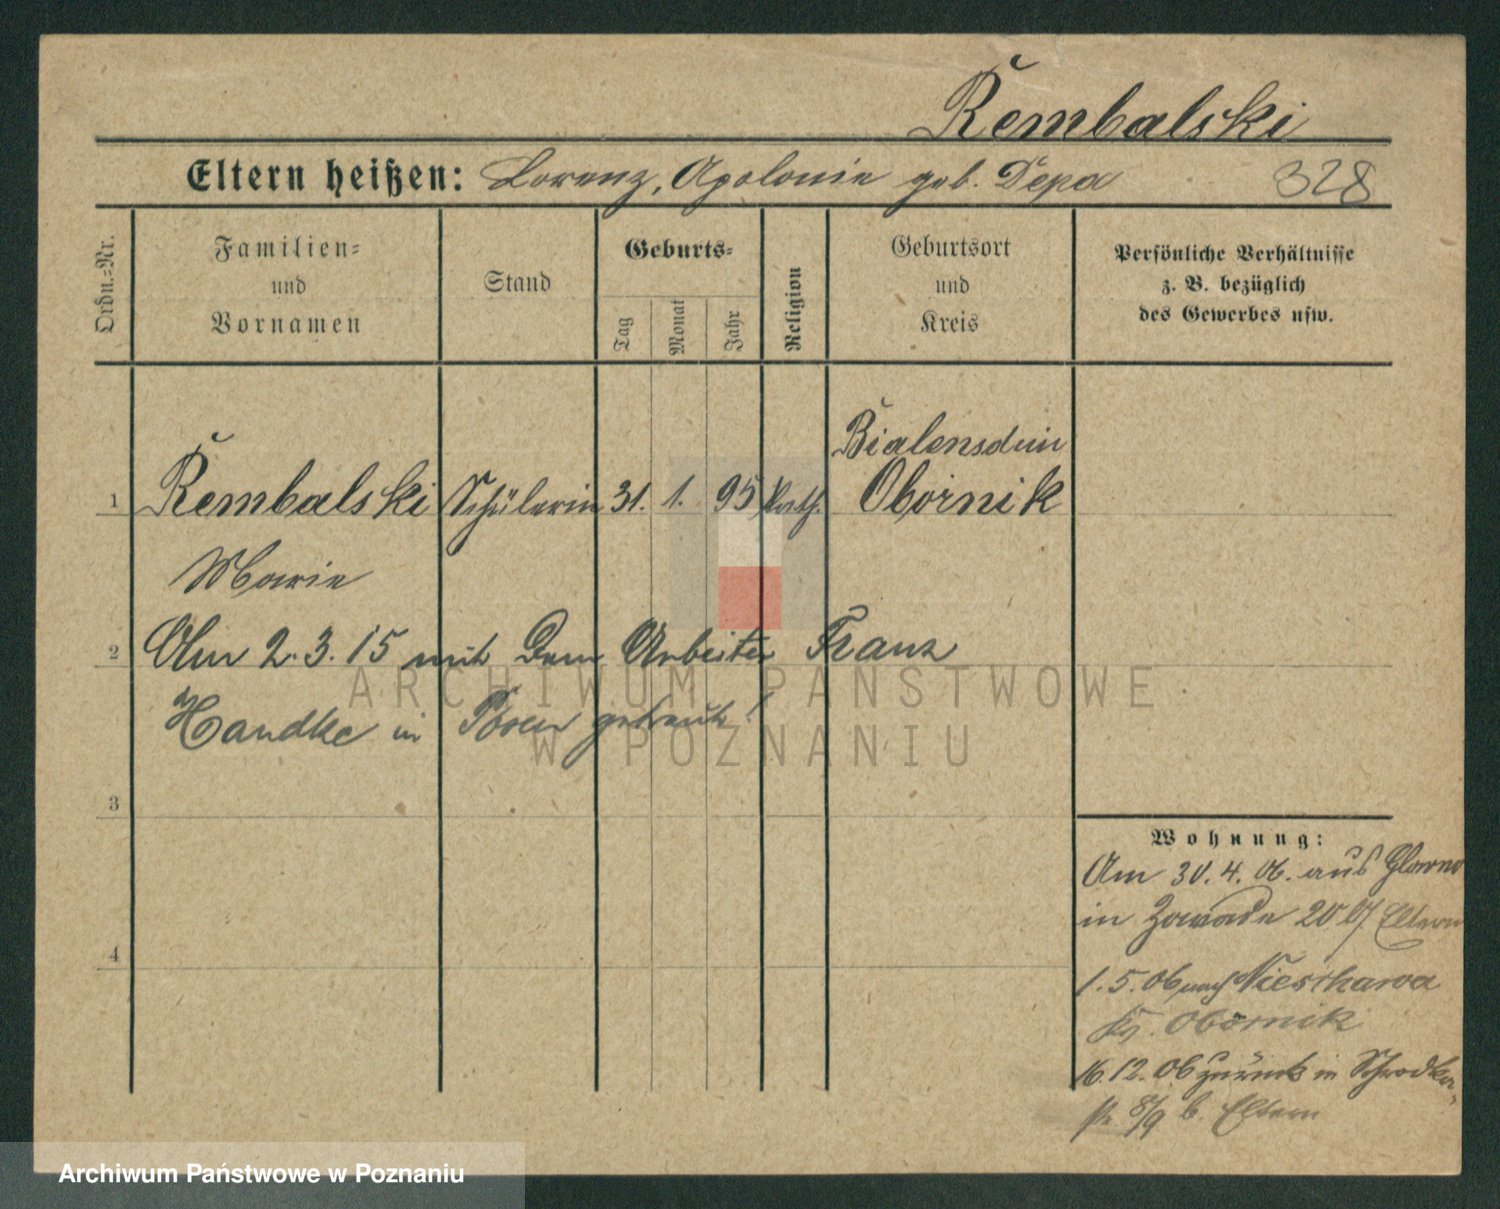 Rembalski
Eltern heißen: Lorenz, Apolonie geb. Depa 328
Ordn.-Nr.
Familien-
und
Vornamen
Stand
Geburts-
Tag
Monat
Jahr
Religion
Geburtsort
und
Kreis
Persönliche Verhältnisse
z. B. bezüglich
des Gewerbes usw.
1 Rembalski Schülerin 31. 1. 95 kath. Obornik
Marie
2 Am 2.3.15 mit dem Arbeiter Franz
Handke in Posen getraut!
3
4
Wohnung:
Am 30.4.06. aus Glowno
in Zawade 20 b/ Eltern
1.5.06 nach
Kr. Obornik
16.12.06 zurück in Schrodka
str 8/9 b. Eltern
ARCHIWUM PAŃSTWOWE
W POZNANIU
Archiwum Państwowe w Poznaniu